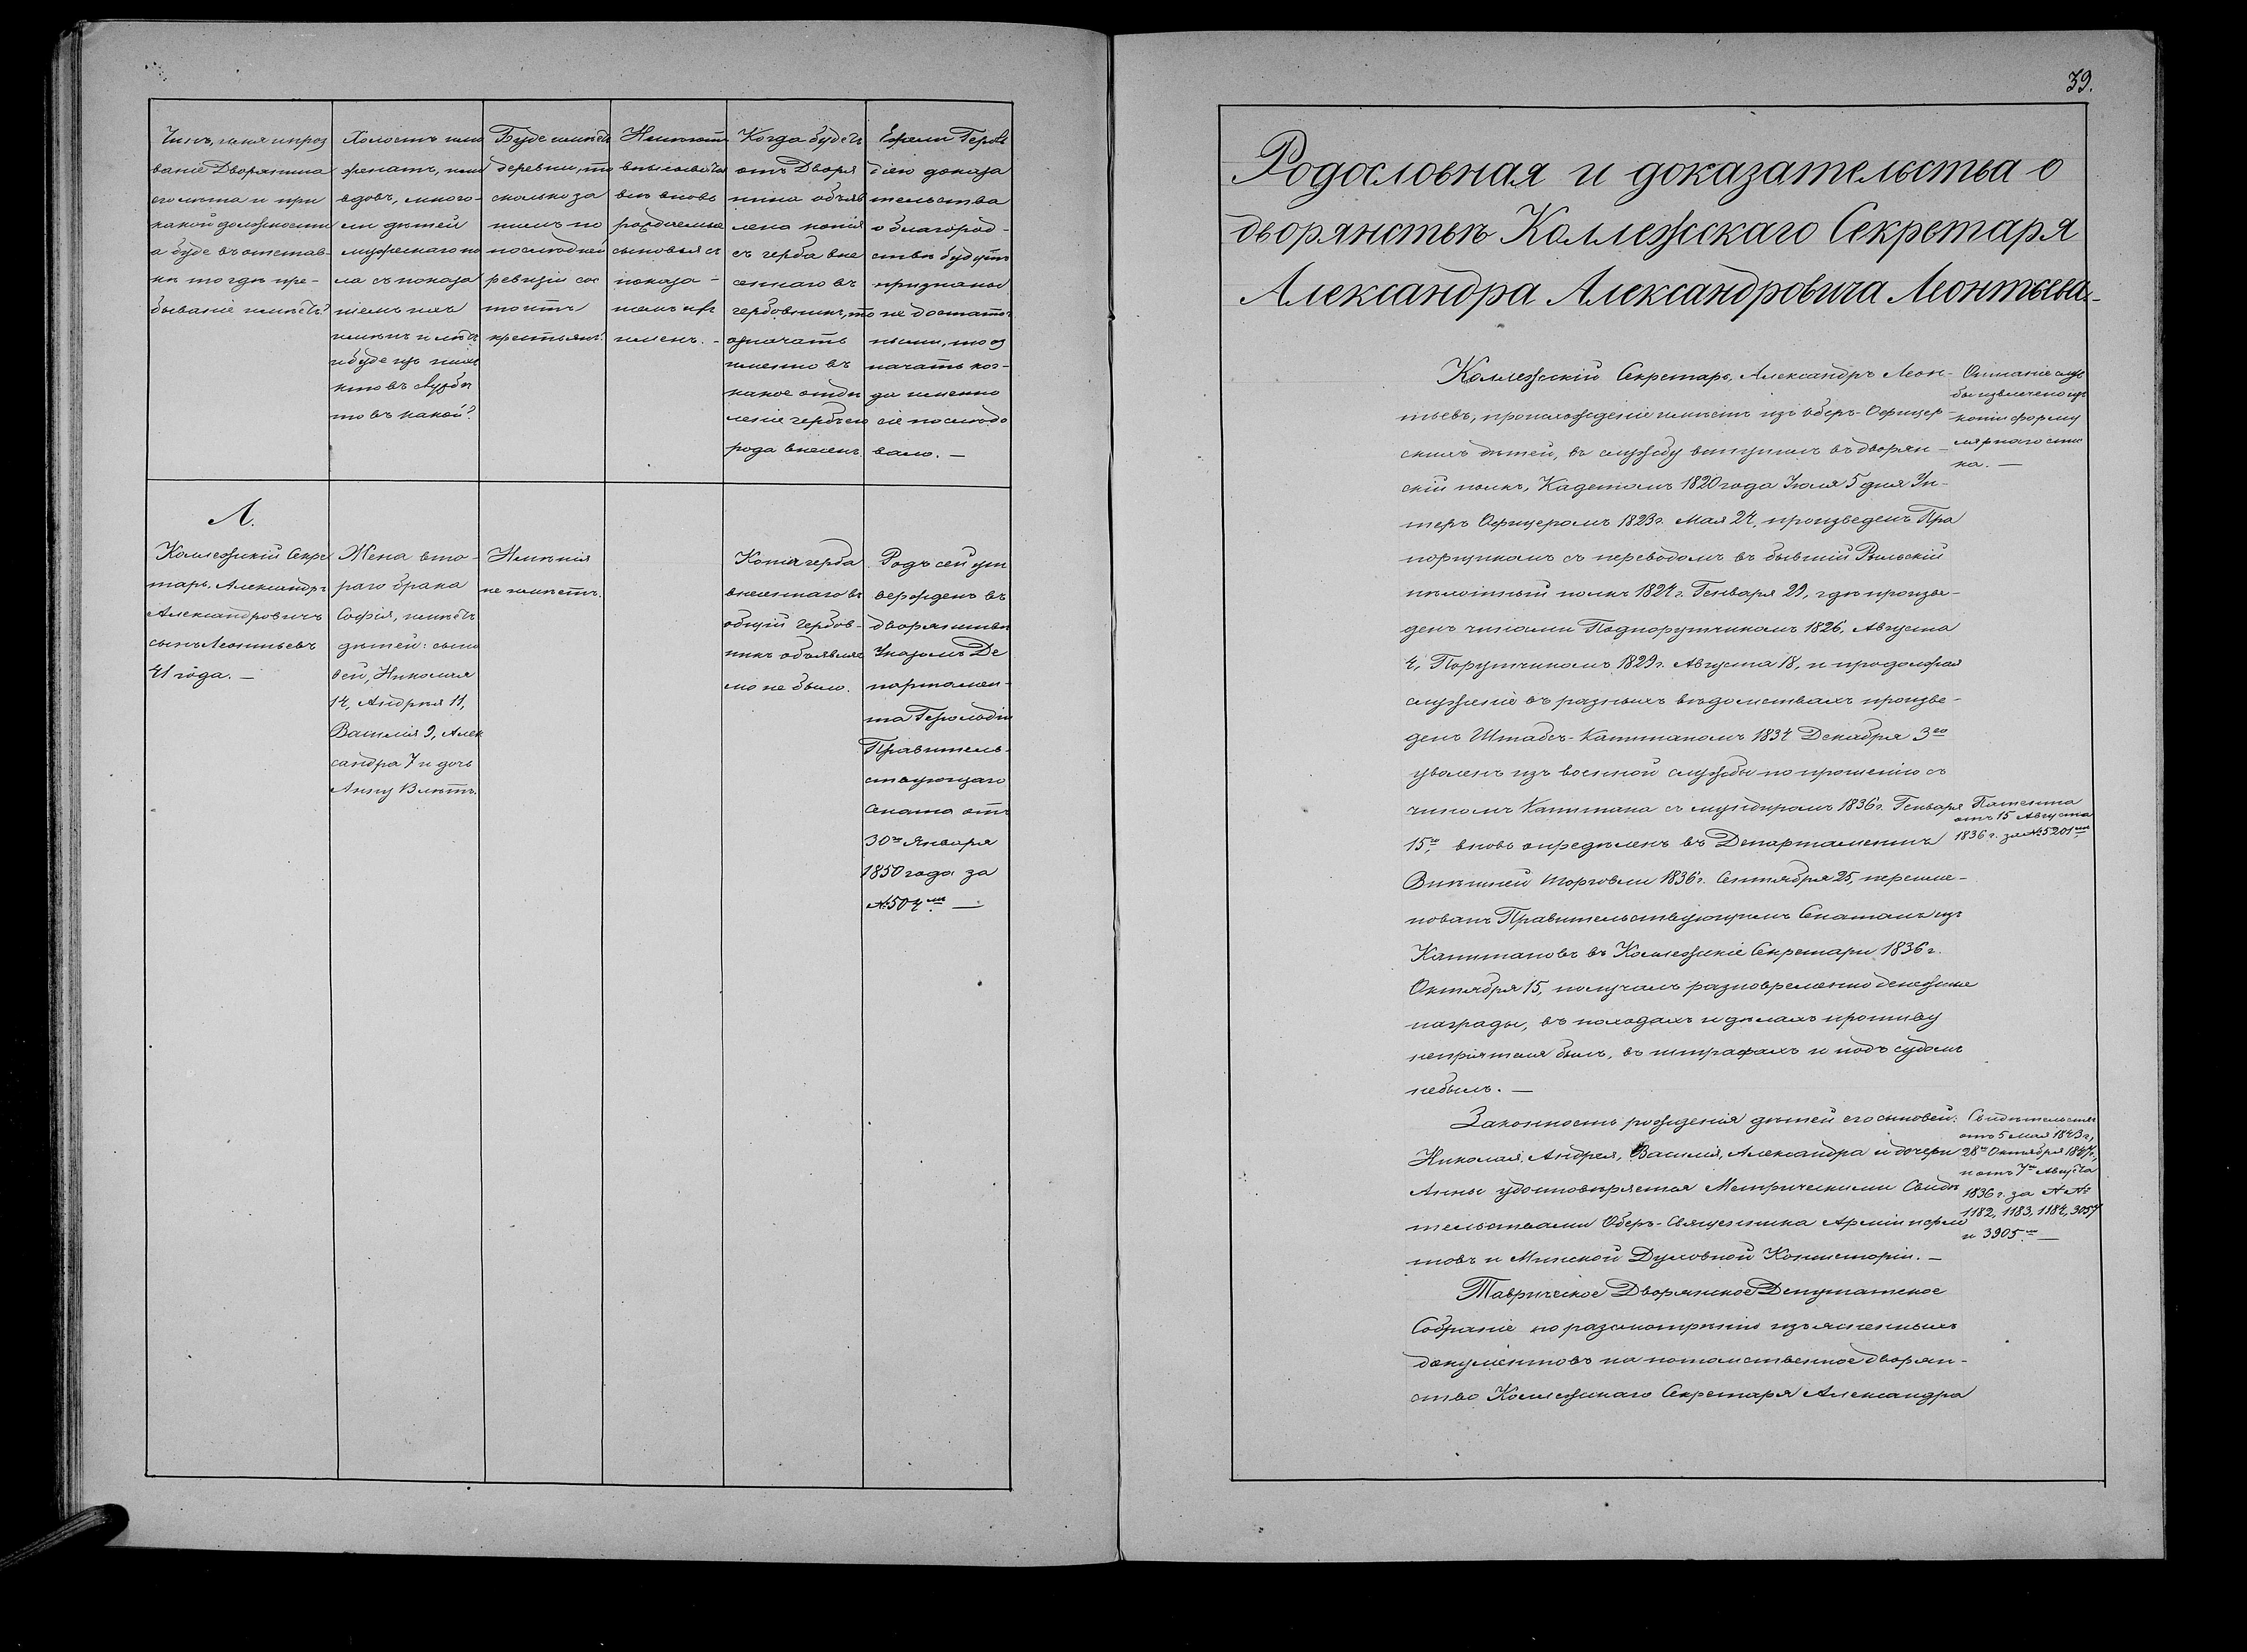 Чинъ, имя и проз
ваніе Дворянина
его лѣта и при
какой должности
а буде въ отстав-
кѣ то гдѣ пре-
бываніе имѣетъ?
Холостъ или
женатъ, или
вдовъ, много-
ли дѣтей
мужескаго по
ла съ показа
ніемъ ихъ
имянъ и лѣтъ
и буде изъ нихъ
кто въ службѣ
то въ какой?
Буде имѣетъ
деревни, то
сколько за
нимъ по
послѣдней
ревизіи сос
тоитъ
крестьянъ?
вновь
раждаемые
сыновья съ
показа-
ніемъ ихъ
именъ. -
Когда будетъ
отъ Дворя
нина объяв
лена копія
съ герба вне
сеннаго въ
гербовникъ, то
означать
именно въ
какое отдѣ
леніе гербъ его
рода внесенъ
Ежели Героль
діею доказа
тельства
о благород-
ствѣ будутъ
признаны
не достаточ
ными, то оз
начать ког-
да именно
сіе послѣдо
вало. —
Л.
Коллежскій Секре
тарь, Александръ
Александровичъ
сынъ Леонтьевъ
41 года. —
Жена вто-
раго брака
Софія, имѣетъ
дѣтей: сыно
вей, Николая
14, Андрея 11,
Василія 9, Алек
сандра 7 и дочь
Анну 13 лѣтъ.
Имѣнія
не имѣетъ.
Копіи герба
внесеннаго въ
общій Гербов-
никъ объявле
но не было.
Родъ сей ут
вержденъ въ
дворянствѣ
Указомъ Де
партамен-
та Герольдіи
Правитель-
ствующаго
Сената отъ
30го Января
1850 года за
№ 504мъ. —
39.
Родословная и доказательства о
дворянствѣ Коллежскаго Секретаря
Александра Александровича Леонтьева.
Коллежскій Секретарь, Александръ Леон-
тьевъ, происхожденіе имѣетъ изъ Оберъ-Офицер-
скихъ дѣтей, въ службу вступилъ въ дворян-
скій полкъ, Кадетомъ 1820 года Іюля 5 дня Ун-
теръ Офицеромъ 1823 г. Мая 24, произведенъ Пра
порщикомъ съ переводомъ въ бывшій Рыльскій
пѣхотный полкъ 1824 г. Генваря 29, гдѣ произве-
денъ чинами Подпорутчикомъ 1826, Августа
4, Порутчикомъ 1829 г. Августа 18, и продолжая
служеніе въ разныхъ вѣдомствахъ произве-
денъ Штабсъ-Капитаномъ 1834 Декабря 3го
уволенъ изъ военной службы по прошенію съ
чиномъ Капитана съ мундиромъ 1836 г. Генваря
15го, вновь опредѣленъ въ Департаментъ
Внѣшней торговли 1836 г. Сентября 25, переиме-
нованъ Правительствующимъ Сенатомъ изъ
Капитановъ въ Коллежскіе Секретари 1836 г.
Октября 15, получалъ разновременно денежные
награды, въ походахъ и дѣлахъ противу
непріятеля былъ, въ штрафахъ и подъ судомъ
небылъ. —
Описаніе служ
бы извлечено изъ
копіи форму
лярнаго спис
ка. —
Патента
отъ 15 Августа
1836 г. за № 5201мъ
Законность рожденія дѣтей его сыновей:
Николая, Андрея, Василія, Александра и дочери
Анны удостовѣряется Метрическими Свидѣ
тельствами Оберъ-Священника Арміи и фло
товъ и Минской Духовной Консисторіи. —
Свидѣтельства
отъ 5 мая 1843 г.,
28го Октября 1847 г.,
и отъ 7го Августа
1836 г. за №№
1182, 1183, 1184, 3057
и 3905мъ. —
Таврическое Дворянское Депутатское
Собраніе по разсмотрѣнію изъясненныхъ
документовъ на потомственное дворян-
ство Коллежскаго Секретаря Александра